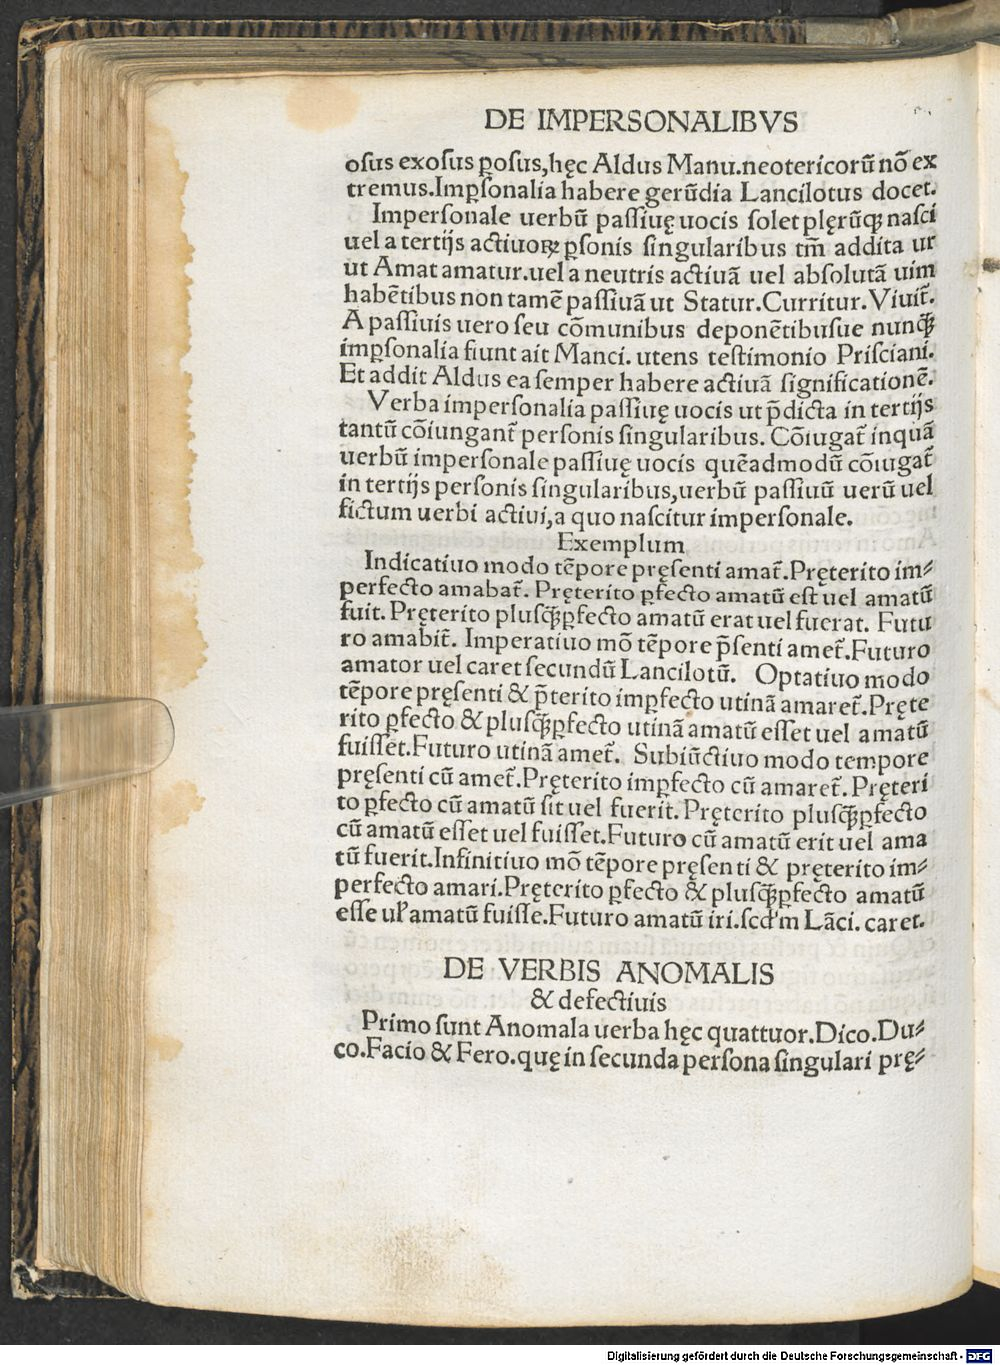 DE IMPERSONALIBVS
osus exosus ꝑosus,hęc Aldus Manu.neotericorũ nõ ex
tremus.Imꝑsonalia habere gerũdia Lancilotus docet.
Impersonale uerbũ passiuę uocis solet plęrũqꝫ nasci
uel a tertijs actiuoꝝ ꝑsonis singularibus tm̃ addita ur
ut Amat amatur.uel a neutris actiuã uel absolutã uim
habẽtibus non tamẽ passiuã ut Statur.Curritur.Viuit̃.
A passiuis uero seu cõmunibus deponẽtibusue nunq̃ꝫ
imꝑsonalia fiunt ait Manci. utens testimonio Prisciani.
Et addit Aldus ea semper habere actiuã significationẽ.
Verba impersonalia passiuę uocis ut p̃dicta in tertijs
tantũ cõiungant̃ personis singularibus. Cõiugat̃ inquã
uerbũ impersonale passiuę uocis quẽadmodũ cõiugat̃
in tertijs personis singularibus,uerbũ passiuũ uerũ uel
fictum uerbi actiui,a quo nascitur impersonale.
Exemplum
Indicatiuo modo tẽpore pręsenti amat̃.Pręterito im⸗
perfecto amabat̃. Pręterito ꝑfecto amatũ est uel amatũ
fuit. Pręterito plusq̃ꝫꝑfecto amatũ erat uel fuerat. Futu
ro amabit̃. Imperatiuo mõ tẽpore p̃senti amet̃.Futuro
amator uel caret secundũ Lancilotũ. Optatiuo modo
tẽpore pręsenti & p̃terito imꝑfecto utinã amaret̃.Pręte
rito ꝑfecto & plusq̃ꝫꝑfecto utinã amatũ esset uel amatũ
fuisset.Futuro utinã amet̃. Subiũctiuo modo tempore
pręsenti cũ amet̃.Pręterito imꝑfecto cũ amaret̃. Pręteri
to ꝑfecto cũ amatũ sit uel fuerit. Pręterito plusq̃ꝫꝑfecto
cũ amatũ esset uel fuisset.Futuro cũ amatũ erit uel ama
tũ fuerit.Infinitiuo mõ tẽpore pręsenti & pręterito im⸗
perfecto amari.Pręterito ꝑfecto & plusq̃ꝫꝑfecto amatũ
esse uꝉ amatũ fuisse.Futuro amatũ iri.scd'm Lãci. caret.
DE VERBIS ANOMALIS
& defectiuis
Primo sunt Anomala uerba hęc quattuor.Dico.Du⸗
co.Facio & Fero.quę in secunda persona singulari prę⸗
Digitalisierung gefördert durch die Deutsche Forschungsgemeinschaft - DFG